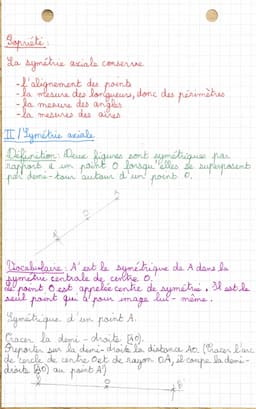 Propriété :
La symétrie axiale conserve
- l'alignement des points
- la mesure des longueurs, donc des périmètres
- la mesure des angles
- la mesures des aires
II / Symétrie axiale
Définition : Deux figures sont symétriques par
rapport à un point O lorsqu'elles se superposent
par demi-tour autour d'un point O.
A
O
Vocabulaire : A' est le symétrique de A dans la
symétrie centrale de centre O.
Le point O est appelée centre de symétrie. Il est le
seul point qui a pour image lui-même.
Symétrique d'un point A.
Tracer la demi-droite [AO).
Reporter sur la demi-droite la distance AO (Tracer l'arc
de cercle de centre O et de rayon OA, il coupe la demi-
droite [AO) au point A')
O